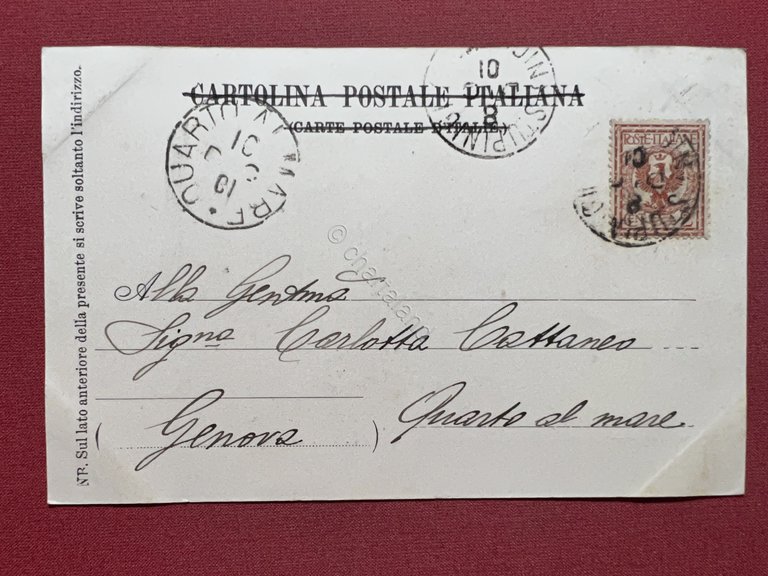 CARTOLINA POSTALE ITALIANA
(CARTE POSTALE D'ITALIE)
NB. Sul lato anteriore della presente si scrive soltanto l'indirizzo.
QUARTO AL MARE
10
01
10
8
POSTE ITALIANE
Alla Gentma
Signa Carlotta Cattaneo
Quarto al mare
(Genova)
© chartaland